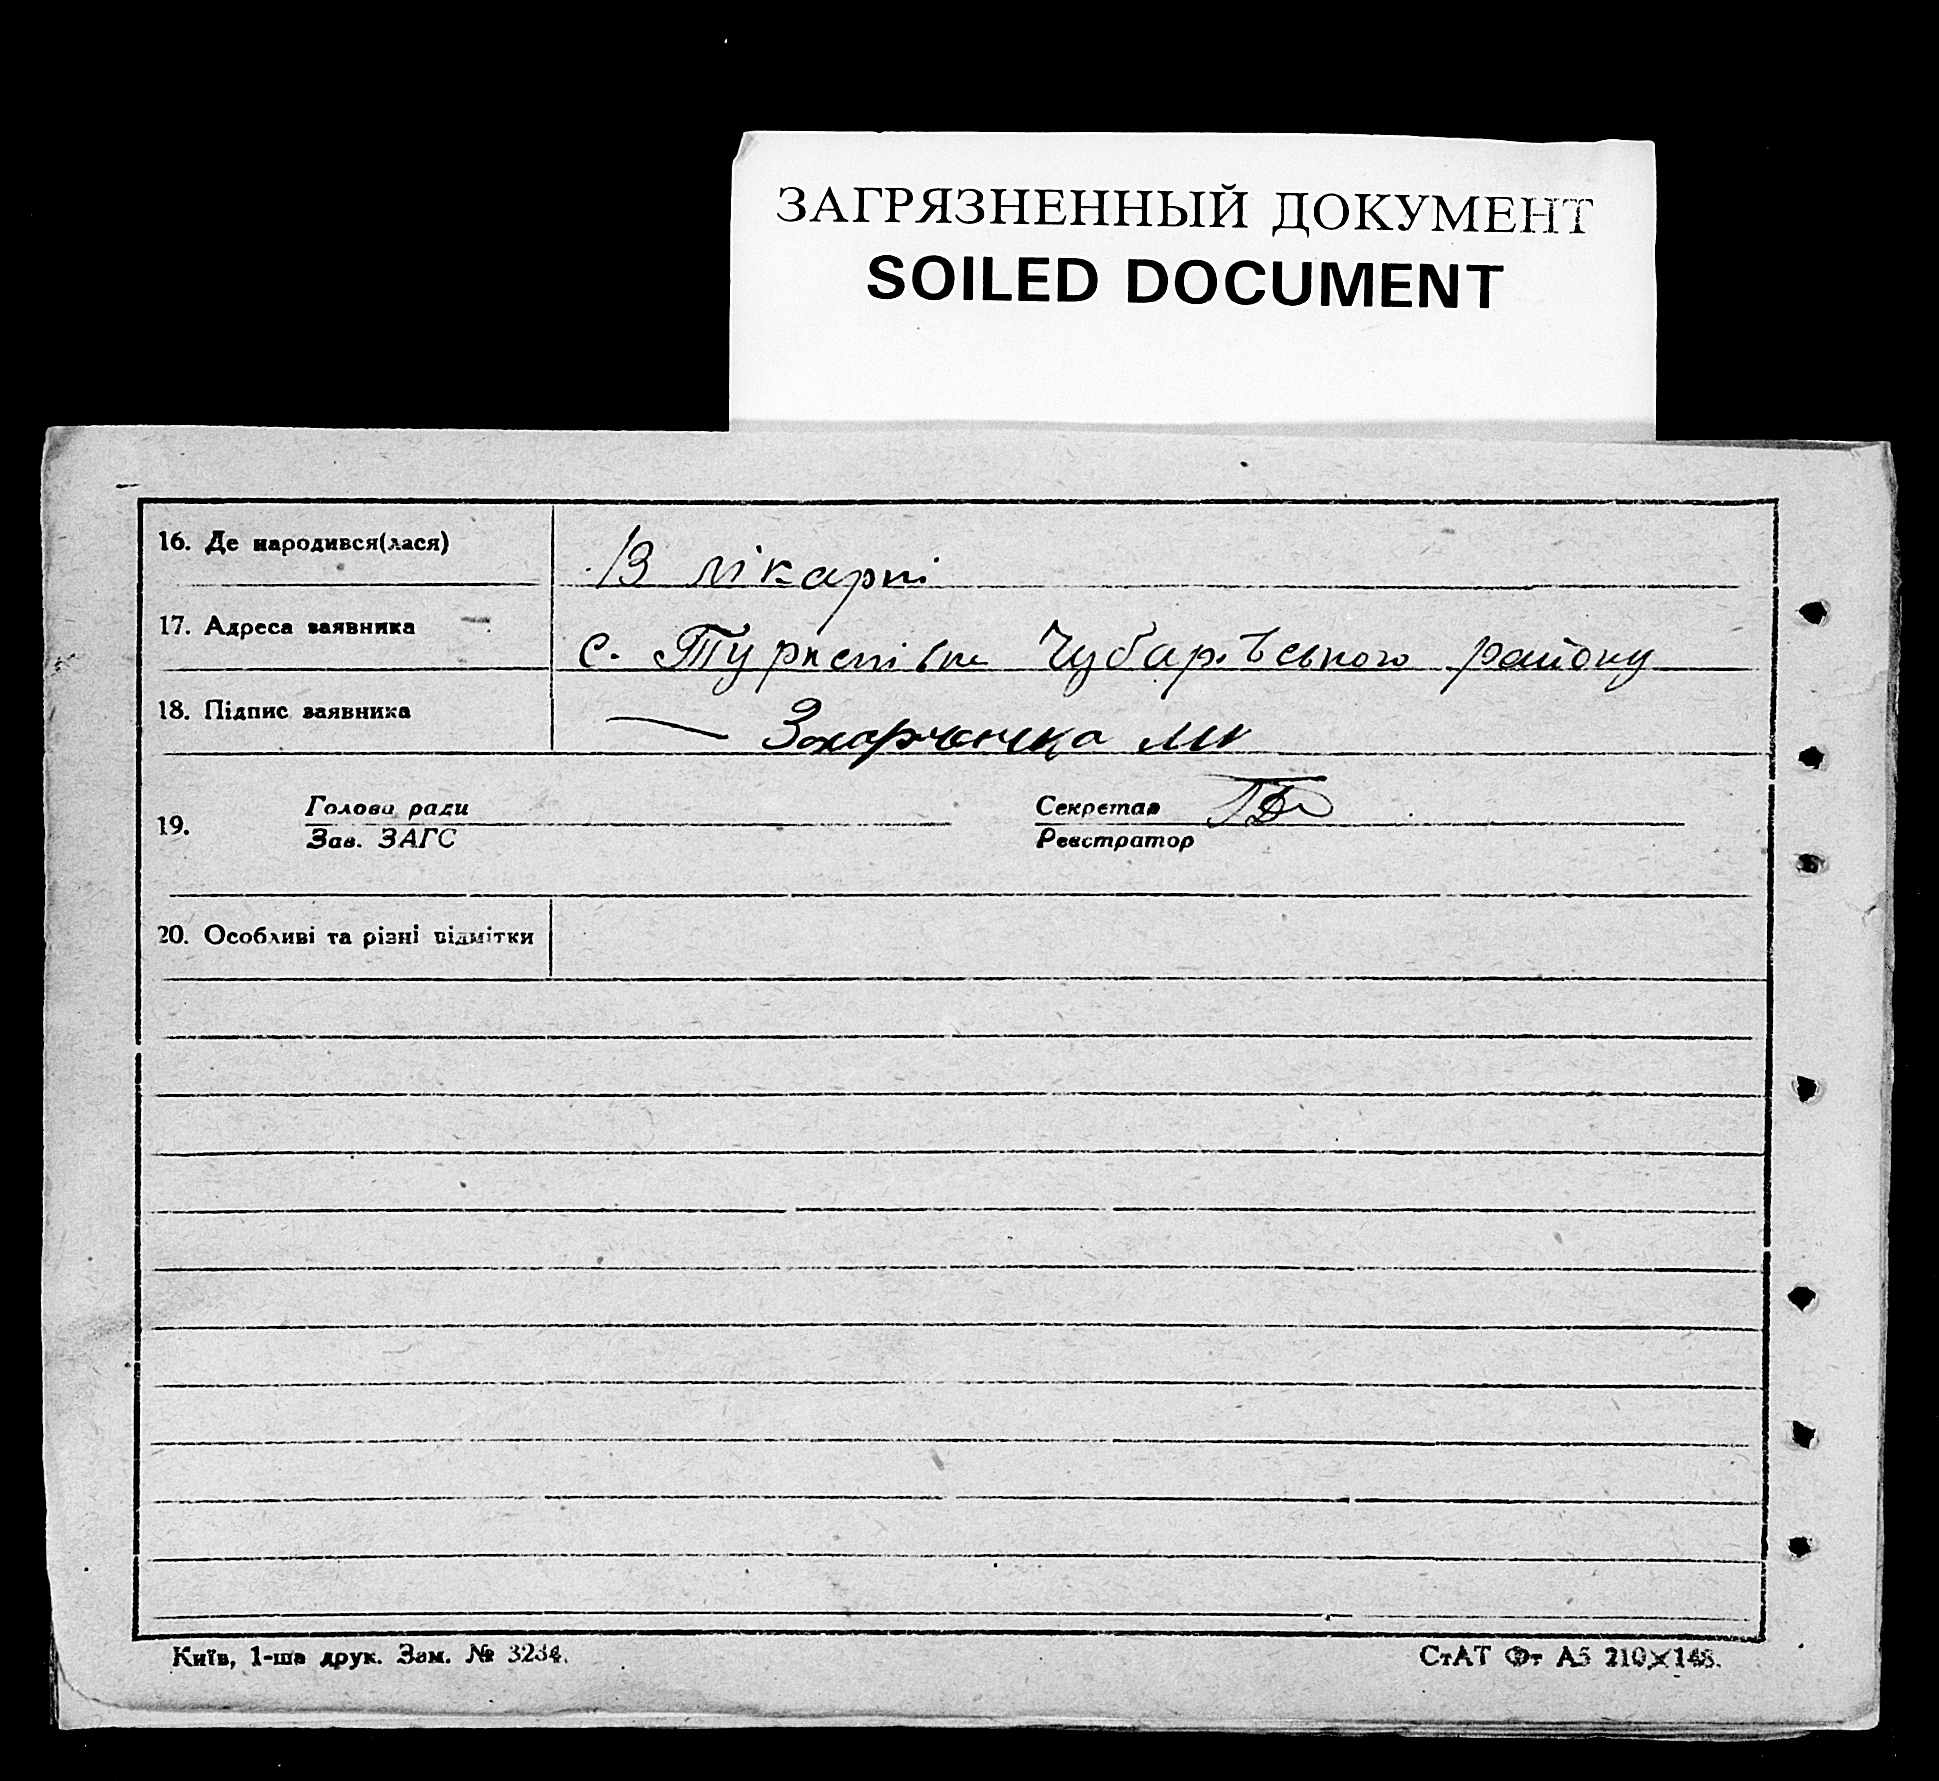 ЗАГРЯЗНЕННЫЙ ДОКУМЕНТ
SOILED DOCUMENT
16. Де народився(лася) В лікарні
17. Адреса заявника с. Чубарівського району
18. Підпис заявника
19. Голова ради Секретар
Зав. ЗАГС Реєстратор
20. Особливі та різні відмітки
Київ, 1-ша друк. Зам. № 3234. СтАТ Фт А5 210×148.